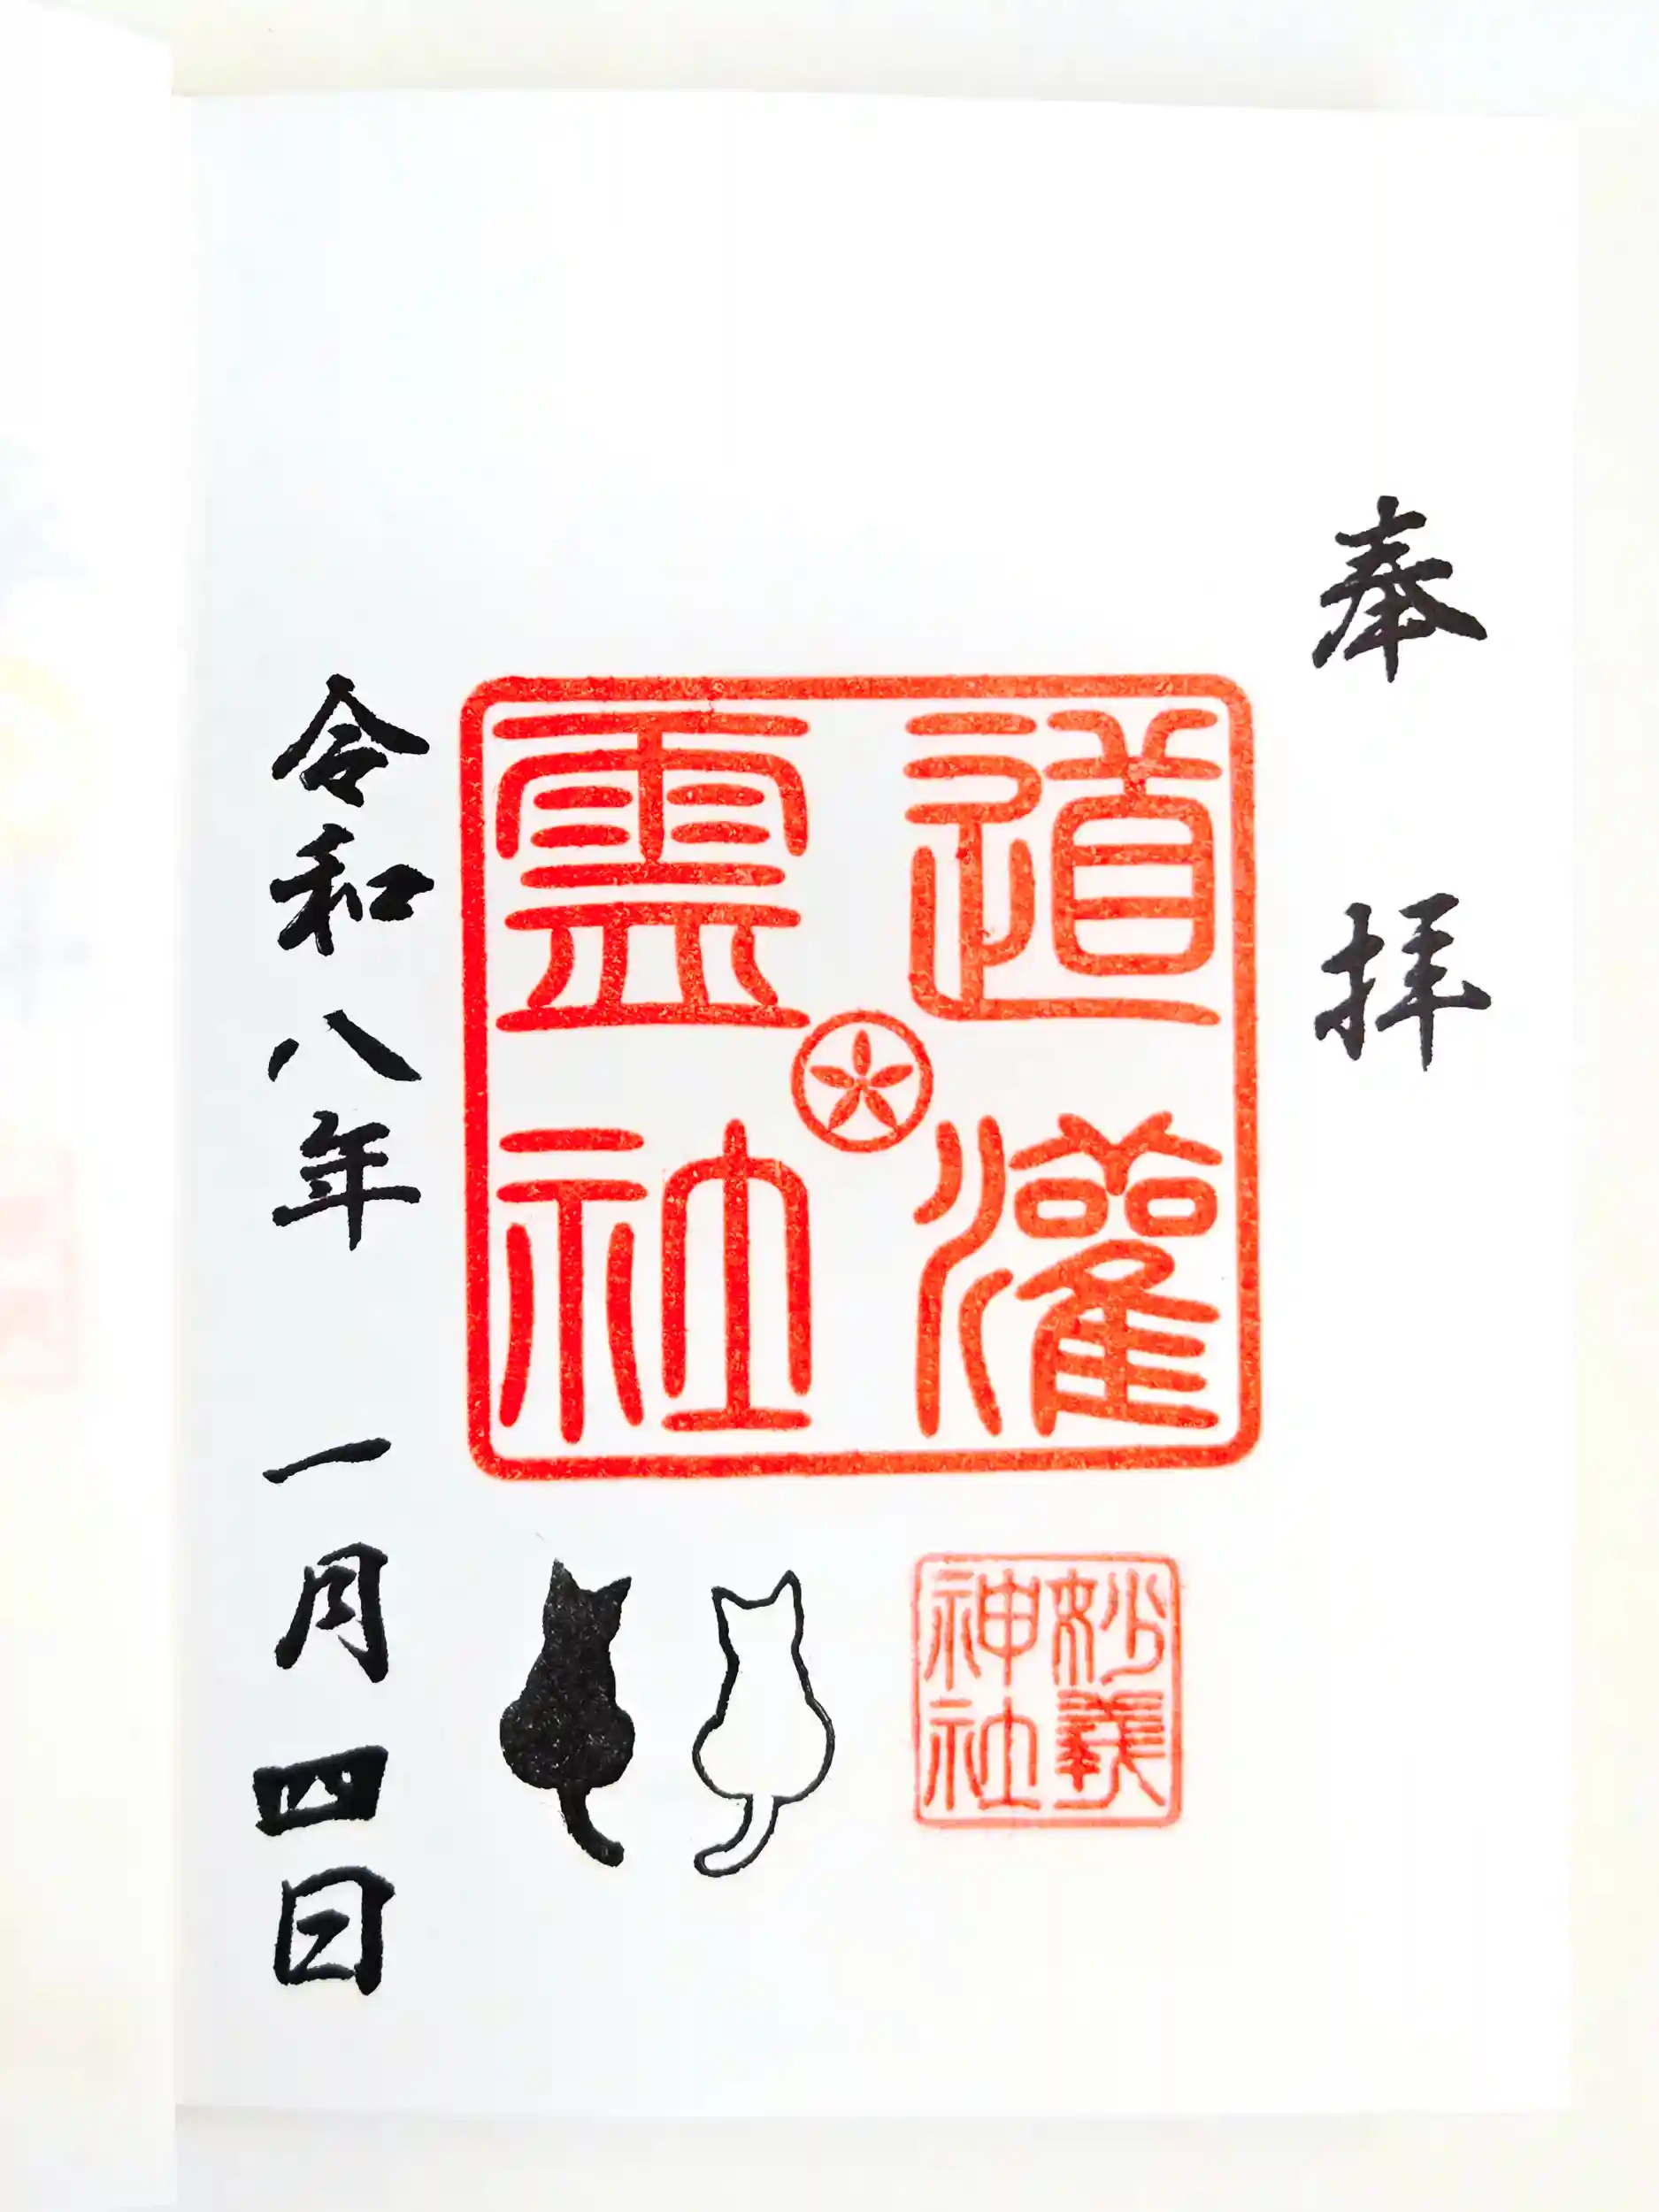 奉拝
道灌
霊社
妙義
神社
令和八年 一月四日